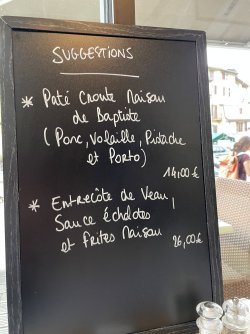 SUGGESTIONS
* Paté Croute Maison
de Baptiste
(Porc, Volaille, Pistache
et Porto)
14,00€
* Entrecôte de Veau,
Sauce échalotes
et frites Maison
26,00€